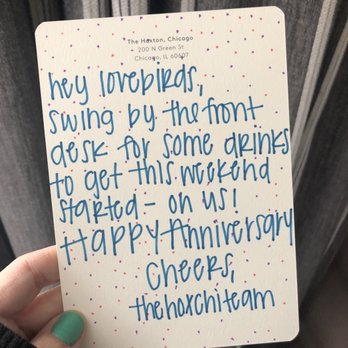 The Hoxton, Chicago
200 N Green St
Chicago, IL 60607
hey lovebirds,
swing by the front
desk for some drinks
to get this weekend
started - on us!
HAPPY Anniversary
Cheers,
thehoxchiteam